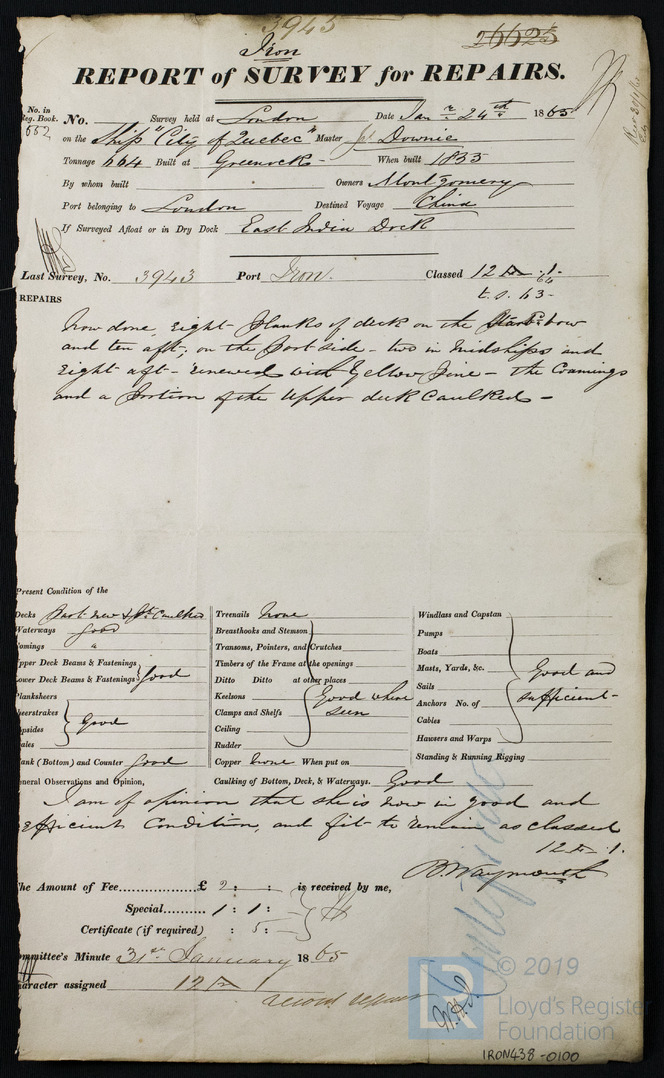 3945
26625
Iron
REPORT of SURVEY for REPAIRS.
No. in Reg. Book. 652
No. Survey held at London Date Jan 24th 1865
on the Ship "City of Quebec" Master Downie
Tonnage 664 Built at Greenock When built 1855
By whom built Owners Montgomery
Port belonging to London Destined Voyage China
If Surveyed Afloat or in Dry Dock East India Dock
Last Survey, No. 3943 Port Iron. Classed 12 A .1.
t.s. 63 -
REPAIRS
Now done, Eight planks of deck on the Starbd bow
and ten aft; on the port side - two in Midships and
Eight aft - renewed with Yellow Pine - the Coamings
and a portion of the Upper deck Caulked -
Present Condition of the
Decks Part new & pt Caulked
Waterways Good
Comings "
Upper Deck Beams & Fastenings
Lower Deck Beams & Fastenings Good
Planksheers
Sheerstrakes
Topsides Good
Wales
Plank (Bottom) and Counter Good
Treenails None
Breasthooks and Stemson
Transoms, Pointers, and Crutches
Timbers of the Frame at the openings
Ditto Ditto at other places
Keelsons Good where
Clamps and Shelfs seen
Ceiling
Rudder
Copper None When put on
Caulking of Bottom, Deck, & Waterways. Good
Windlass and Capstan
Pumps
Boats
Masts, Yards, &c. Good and
Sails sufficient -
Anchors No. of
Cables
Hawsers and Warps
Standing & Running Rigging
General Observations and Opinion,
I am of opinion that she is now in good and
efficient Condition, and fit to remain as classed
12 A .1.
B. Waymouth
The Amount of Fee £ 2 : : is received by me,
Special 1 : 1 :
Certificate (if required) : 5 :
Committee's Minute 31st January 1865
Character assigned 12 A 1
record repairs
Certificate
© 2019
LR
Lloyd's Register
Foundation
IRON438-0100